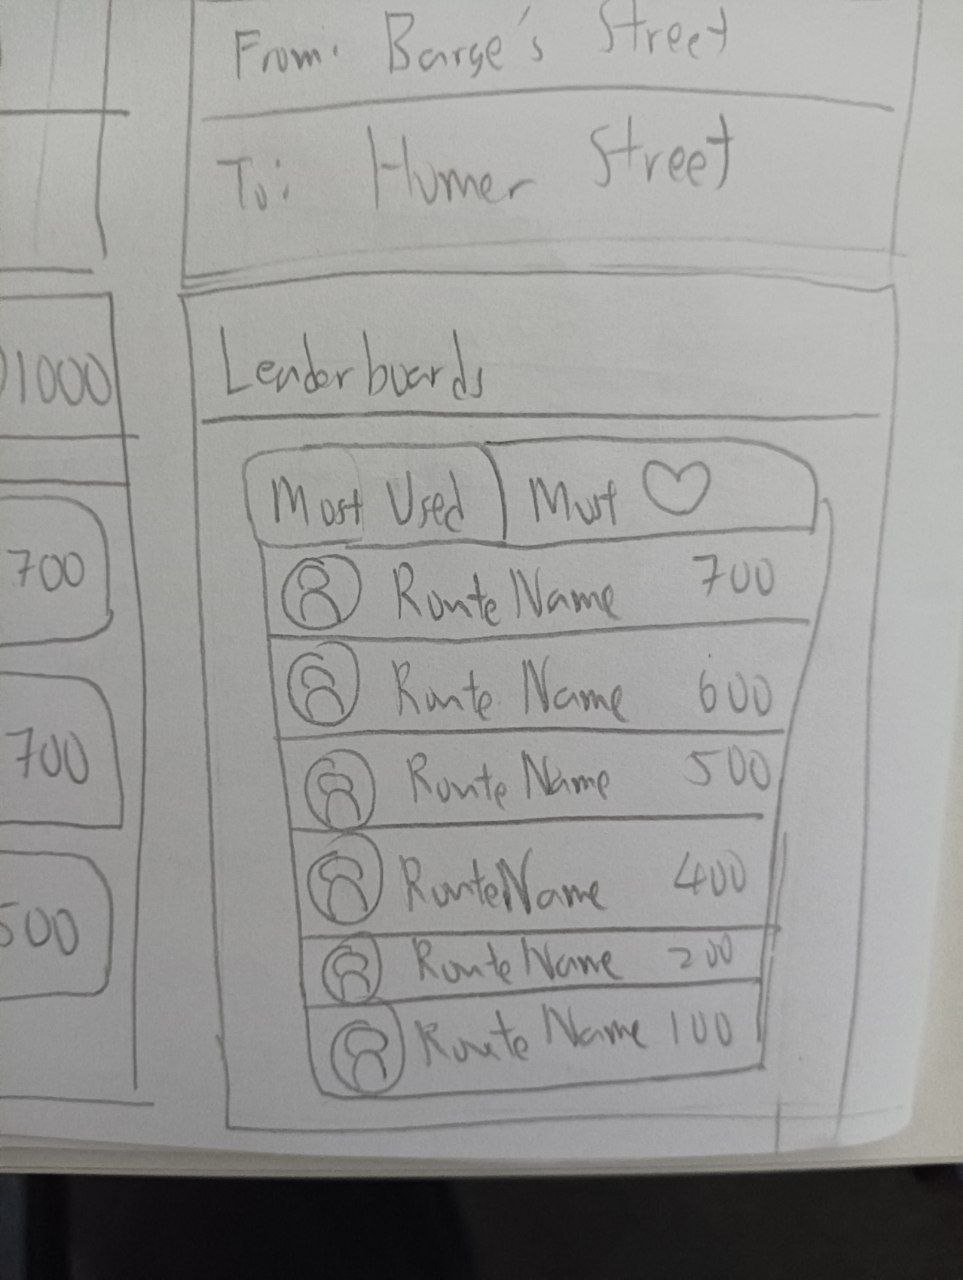 From: Barge's Street
To: Humer Street
Leaderboards
Most Used
Most
Route Name 700
Route Name 600
Route Name 500
Route Name 400
Route Name 200
Route Name 100
1000
700
700
500